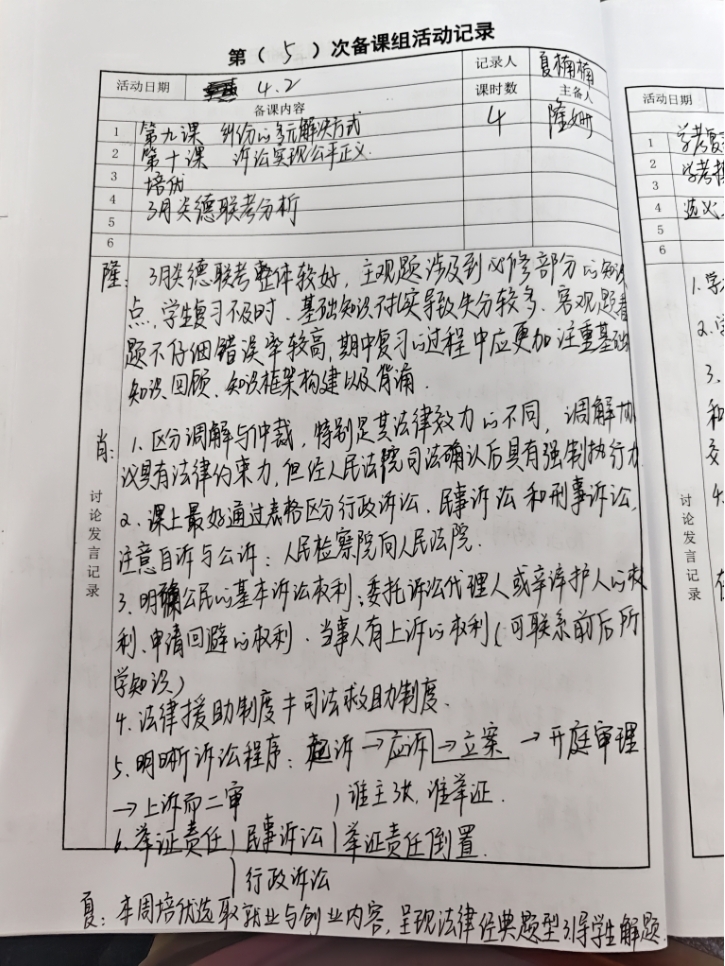 第（5）次备课组活动记录
活动日期 4.2 记录人 夏楠楠
备课内容 课时数 主备人
1 第九课 纠纷的多元解决方式 4 隆姗
2 第十课 诉讼实现公平正义.
3 培优
4 3月炎德联考分析
5
6
隆：3月炎德联考整体较好，主观题涉及到必修部分的知识
点，学生复习不及时、基础知识不扎实导致失分较多. 客观题看
题不仔细错误率较高，期中复习的过程中应更加注重基础
知识回顾、知识框架构建以及背诵.
肖：1. 区分调解与仲裁，特别是其法律效力的不同，调解协
议具有法律约束力，但经人民法院司法确认后具有强制执行力
2. 课上最好通过表格区分行政诉讼、民事诉讼和刑事诉讼，
注意自诉与公诉：人民检察院向人民法院.
3. 明确公民的基本诉讼权利：委托诉讼代理人或辛辩护人的权
利、申请回避的权利. 当事人有上诉的权利（可联系前后所
学知识）
4. 法律援助制度≠司法救助制度.
5. 明晰诉讼程序：起诉→应诉→立案→开庭审理
→上诉而二审
谁主张，谁举证.
6. 举证责任 民事诉讼 举证责任倒置.
行政诉讼
讨论发言记录
夏：本周培优选取就业与创业内容，呈现法律经典题型引导学生解题.
活动日期
1 学考复
2 学考
3
4
5
6
1. 学
2.
3.
和
交
4.
讨论发言记录
在